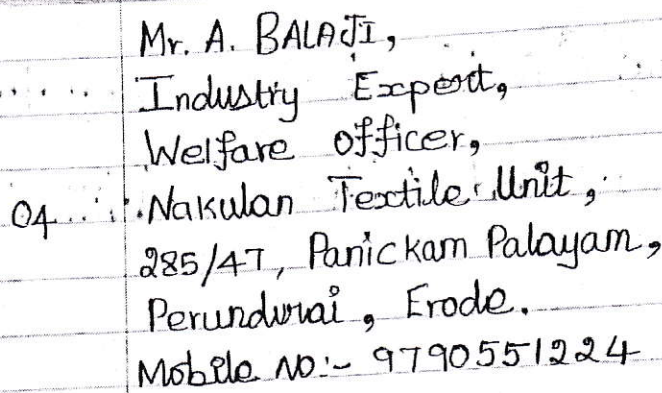 Mr. A. BALAJI,
Industry Expert,
Welfare officer,
04 Nakulan Textile Unit,
285/47, Panickam Palayam,
Perundurai, Erode.
Mobile No:- 9790551224